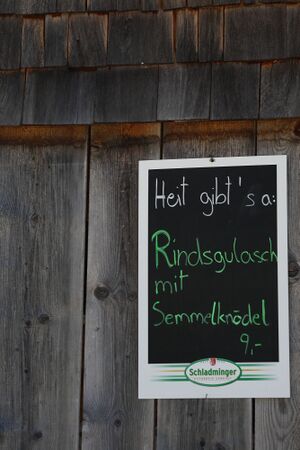 Heit gibt's a:
Rindsgulasch
mit
Semmelknödel
9,-
Schladminger